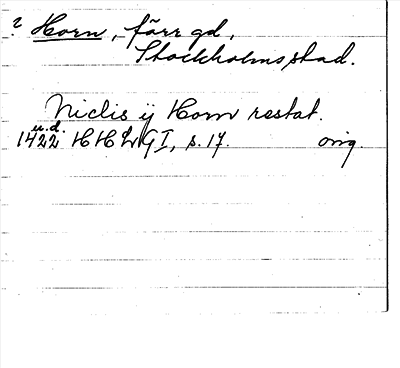 ? Horn, förr gd,
Stockholms stad.
Niclis ij Horn restat.
u.d.
1422 HH I, s. 17. orig.